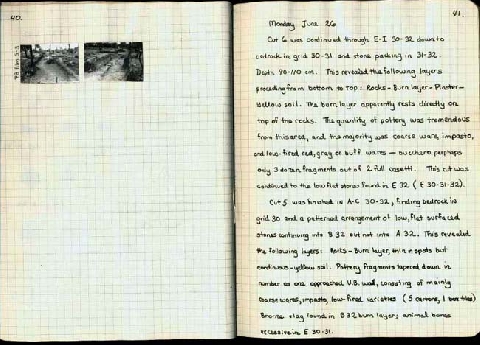 40.
41.
Monday June 26
Cut 6 was continued through E-I 30-32 down to
bedrock in grid 30-31 and stone packing in 31-32.
Depth 80-110 cm. This revealed the following layers
proceeding from bottom to top: Rocks - Burn layer - Plaster -
Yellow soil. The burn layer apparently rests directly on
top of the rocks. The quantity of pottery was tremendous
from this area, and the majority was coarse ware, impasto,
and low-fired red, gray or buff wares - bucchero perhaps
only 3 dozen fragments out of 2 full cassetti. This cut was
continued to the low flat stones found in E 32 (E 30-31-32).
Cut 5 was finished in A-C 30-32, finding bedrock in
grid 30 and a patterned arrangement of low, flat surfaced
stones continuing into B 32 but not into A 32. This revealed
the following layers: Rocks - Burn layer, thin in spots but
continuous - yellow soil. Pottery fragments tapered down in
number as one approached wall, consisting of mainly
coarse wares, impasto, low-fired varieties
Bronze found in B 32 burn layer; animal bones
E 30-31.